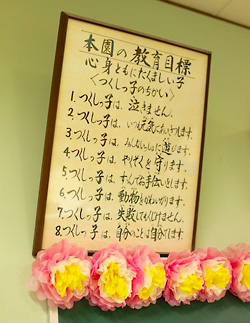 本園の教育目標
心身ともにたくましい子
〈つくしっ子のちかい〉
1.つくしっ子は、泣きません。
2.つくしっ子は、いつも元気にあいさつします。
3.つくしっ子は、みんないっしょに遊びます。
4.つくしっ子は、やくそくを守ります。
5.つくしっ子は、すすんでお手伝いをします。
6.つくしっ子は、動物をかわいがります。
7.つくしっ子は、失敗してもくじけません。
8.つくしっ子は、自分のことは自分でします。